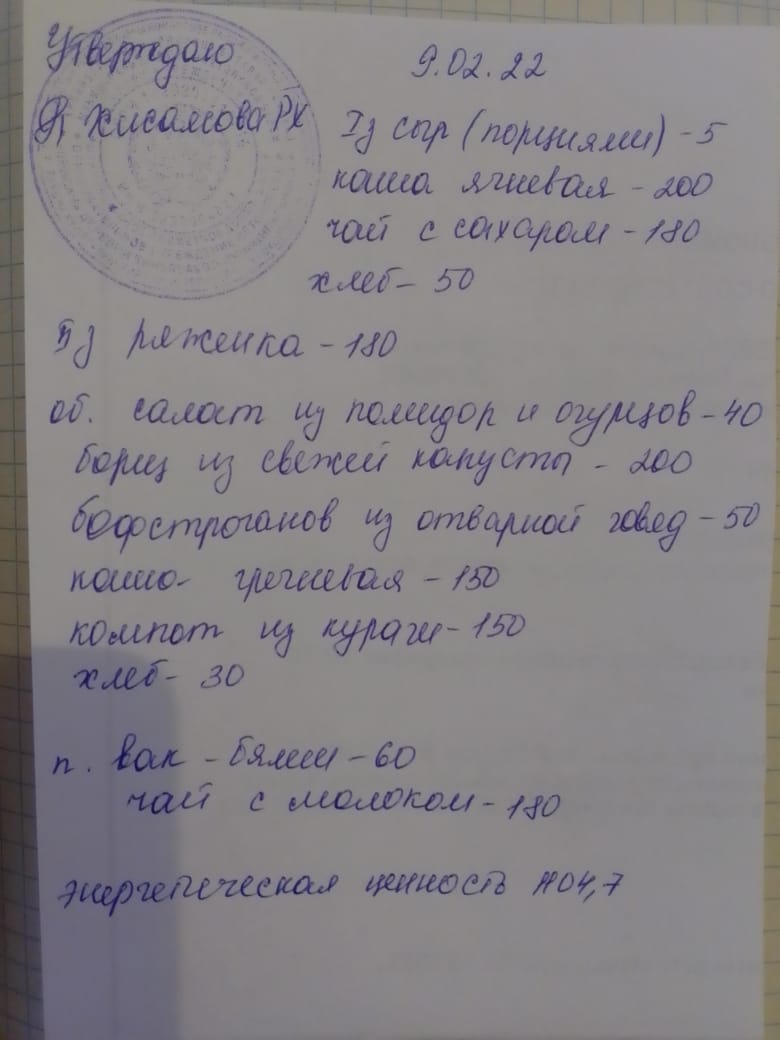 Утверждаю
9.02.22
Хисамова РХ
Iз сыр (порциями) - 5
каша ячневая - 200
чай с сахаром - 180
хлеб - 50
IIз ряженка - 180
об. салат из помидор и огурцов - 40
борщ из свежей капусты - 200
бофстроганов из отварной говяд - 50
каша гречневая - 150
компот из кураги - 150
хлеб - 30
п. вак - бялиш - 60
чай с молоком - 180
энергетическая ценность 1104,7